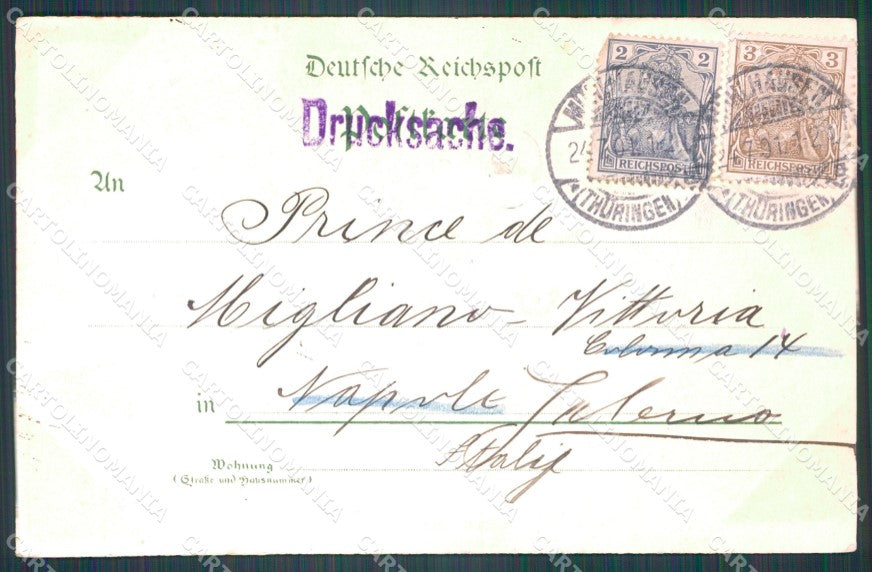 Deutsche Reichspost
Postkarte
Drucksache.
2 2
3 3
REICHSPOST
REICHSPOST
MÜHLHAUSEN
(THÜRINGEN)
(THÜRINGEN)
An
Prince de
Migliano - Vittoria
Colonna 14
in Napoli Salerno
Italy
Wohnung
(Straße und Hausnummer)
CARTOLINOMANIA